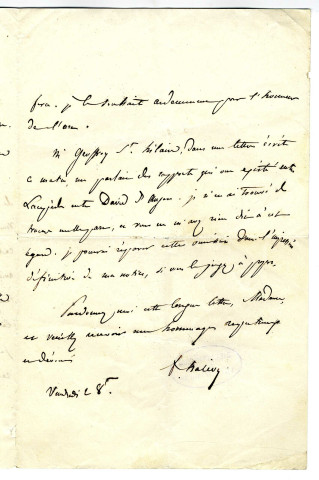 fera. je le souhait ardemment pour l'honneur
de l'
Mr Geoffroy St. Hilaire, dans une lettre écrite
ce matin, me parlait des rapports qui ont existé entre
et David D'Angers. je n'en ai trouvé de
trace nulle part, et vous ne m'avez rien dit à cet
égard. je pourrai réparer cette omission dans l'impression
définitive de ma notice, si vous le jugez à propos.
Pardonnez moi cette longue lettre, Madame,
et veuillez recevoir mes hommages respectueux
et dévoués
F. Halévy
Vendredi 28